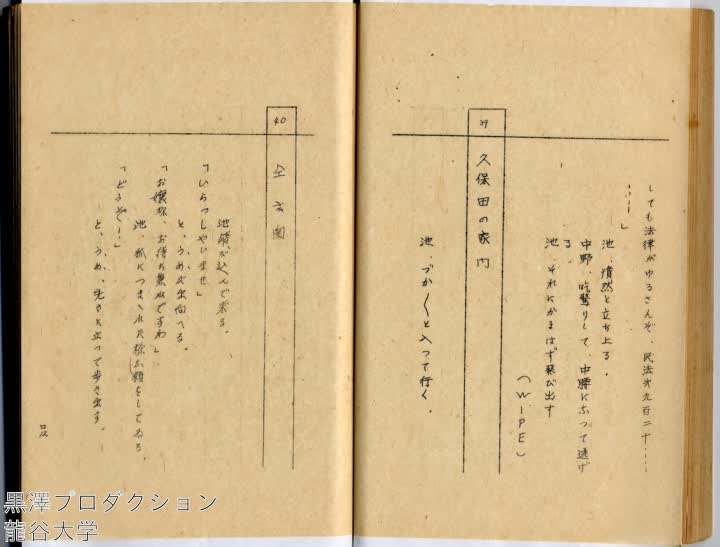 しても法律がゆるさんぞ、民法第九百二十……
……」
池、憤然と立ち上る。
中野、吃驚りして、中腰になつて逃げ
る。
池、それにかまはず飛び出す
(WIPE)
39
久保田の家 門
池、づか〱と入つて行く。
40
仝 玄関
池績が込んで来る。
「いらつしやいませ」
と、うめが出向へる。
「お嬢様、お待ち兼ねですわ」
池、狐につまゝれた様な顔をしてゐる。
「どうぞ…」
と、うめ、先きに立つて歩き出す。
黒澤プロダクション
龍谷大学